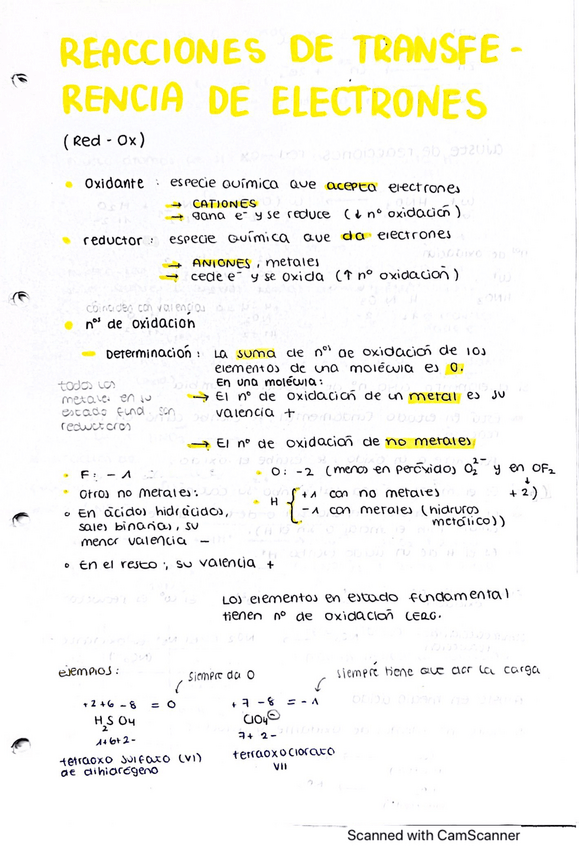 REACCIONES DE TRANSFE-
RENCIA DE ELECTRONES
(Red-Ox)
• Oxidante : especie química que acepta electrones
→ CATIONES
→ gana e⁻ y se reduce (↓ nº oxidación)
• reductor : especie química que da electrones
→ ANIONES, metales
→ cede e⁻ y se oxida (↑ nº oxidación)
coincidea con valencias
• nºs de oxidación
– Determinación : La suma de nºs de oxidación de los
elementos de una molécula es 0.
En una molécula:
→ El nº de oxidación de un metal es su
valencia +
todos los
metales en su
estado fund son
reductores
→ El nº de oxidación de no metales
• F: -1
• O: -2 (menos en peróxidos O₂²⁻ y en OF₂
↓
+2)
• Otros no metales:
◦ En ácidos hidrácidos,
sales binarias, su
menor valencia –
• H { +1 con no metales
-1 con metales (hidruros
metálico))
◦ En el resto; su valencia +
Los elementos en estado fundamental
tienen nº de oxidación CERO.
ejemplos:
siempre da 0
siempre tiene que dar la carga
+2+6-8 = 0
H₂SO₄
1+6+2-
tetraoxo sulfato (VI)
de dihidrógeno
+7-8 = -1
ClO₄⊖
7+ 2-
tetraoxoclorato
VII
Scanned with CamScanner